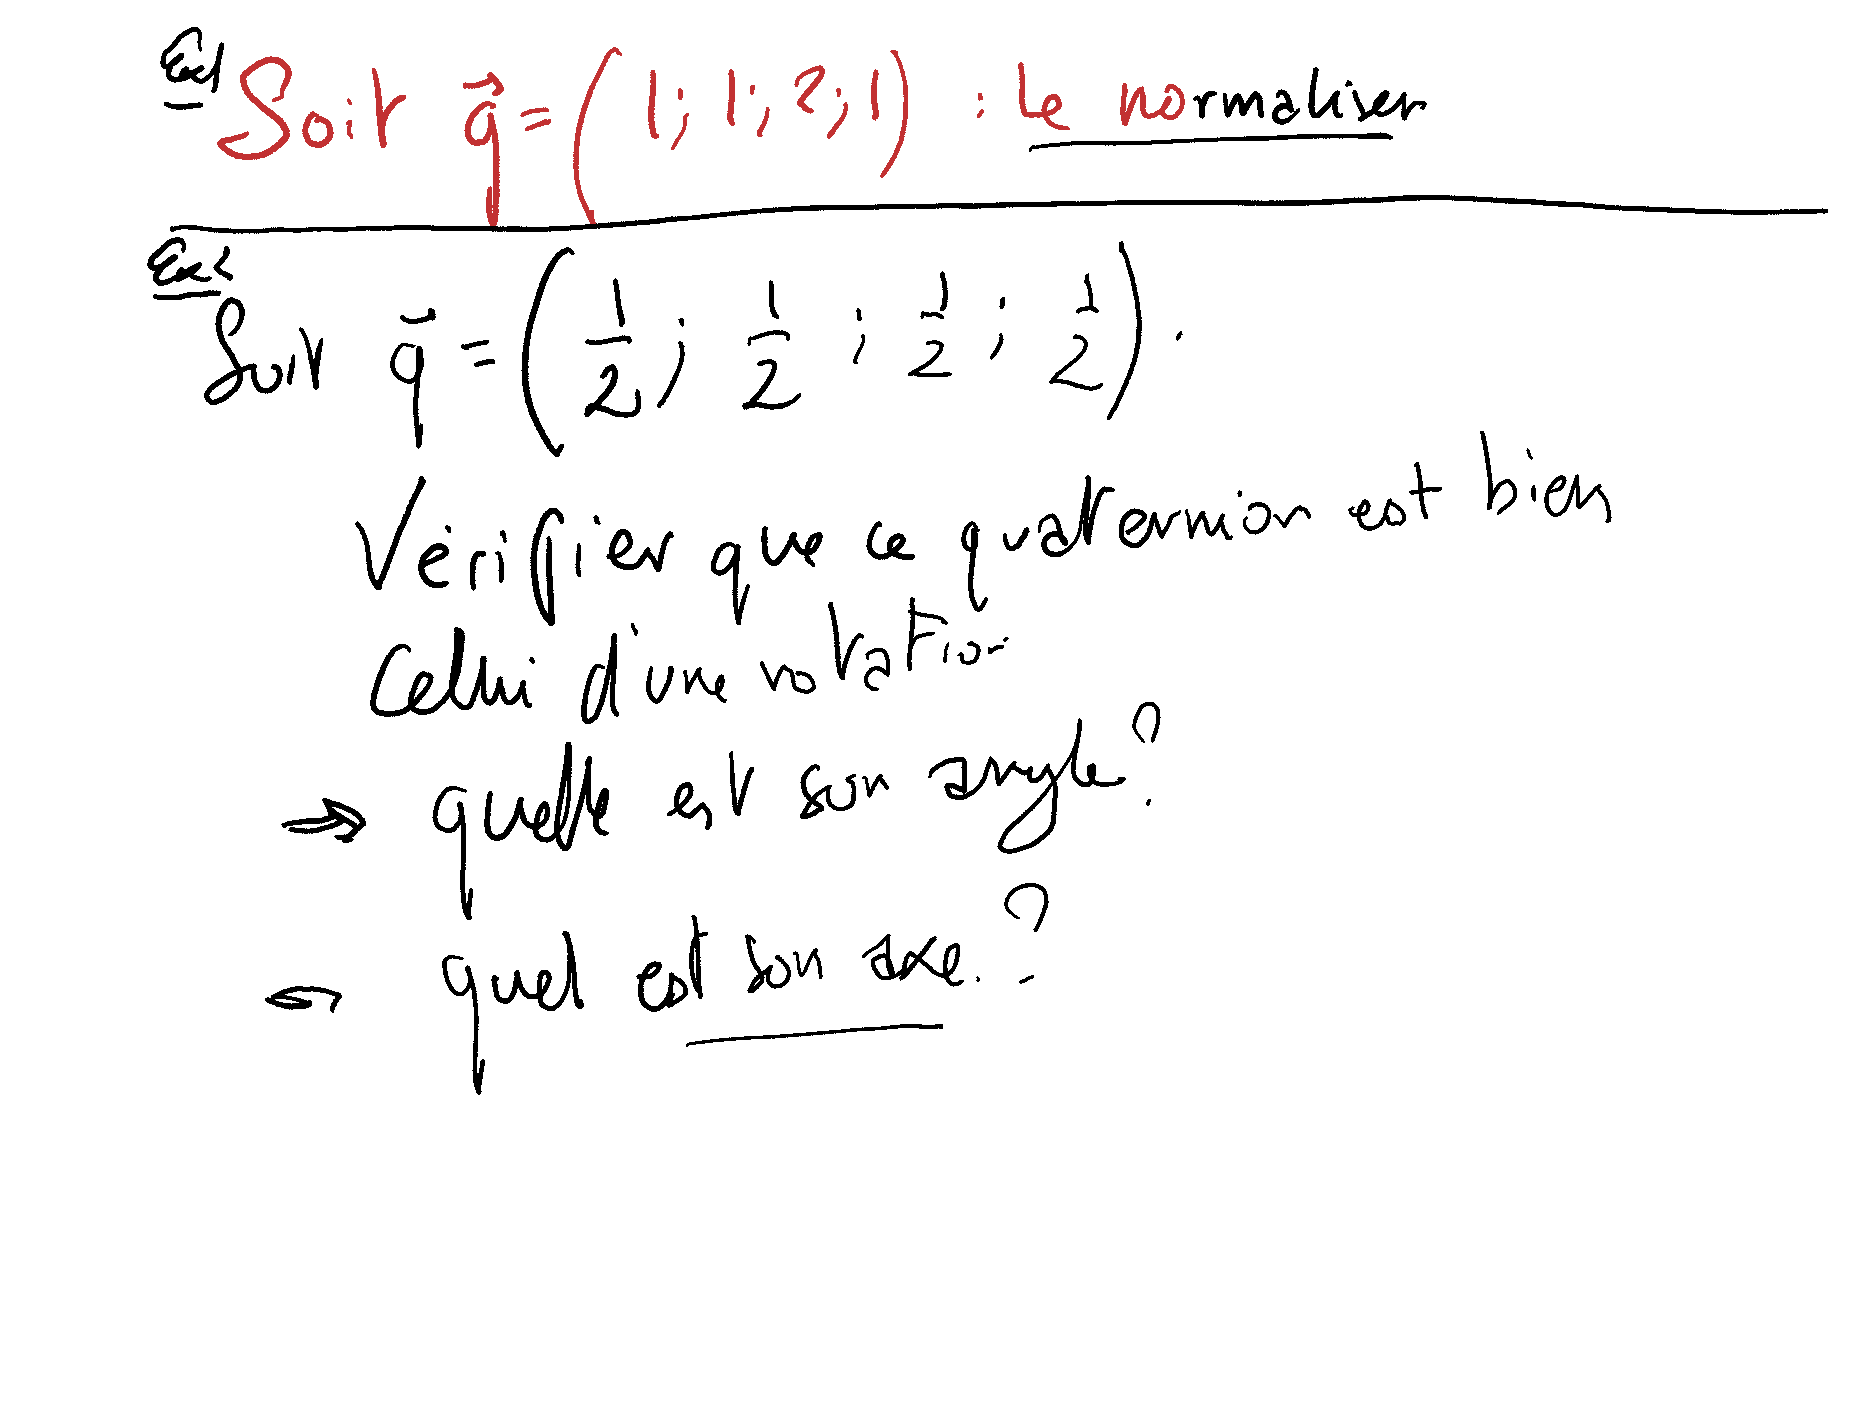 Ex1 Soit q⃗ = (1; 1; 2; 1) : le normaliser
Ex2
Soit q⃗ = (1/2; 1/2; 1/2; 1/2).
Vérifier que ce quaternion est bien
celui d'une rotation
⇒ quelle est son angle ?
quel est son axe. ?